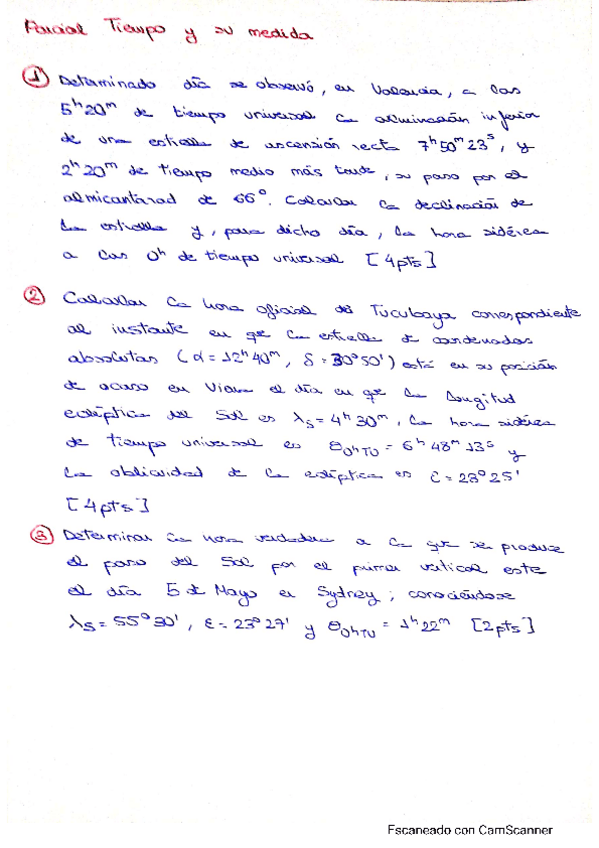 Parcial Tiempo y su medida
1 Determinado día se observó, en Valencia, a las
5h20m de tiempo universal la culminación inferior
de una estrella de ascensión recta 7h50m23s, y
2h20m de tiempo medio más tarde, su paso por el
almicantarad de 66º. Calcular la declinación de
la estrella y, para dicho día, la hora sidérea
a las 0h de tiempo universal [4pts]
2 Calcular la hora oficial de Tucubaya correspondiente
al instante en que la estrella de coordenadas
absolutas (α = 12h40m, δ = 30º50') está en su posición
de ocaso en Viena el día en que la longitud
eclíptica del Sol es λs = 4h30m, la hora sidérea
de tiempo universal es θ0hTU = 6h48m13s y
la oblicuidad de la eclíptica es ε = 23º25'
[4pts]
3 Determinar la hora verdadera a la que se produce
el paso del Sol por el primer vertical este
el día 5 de Mayo en Sydney; conociéndose
λs = 55º30', ε = 23º27' y θ0hTU = 1h22m [2pts]
Escaneado con CamScanner